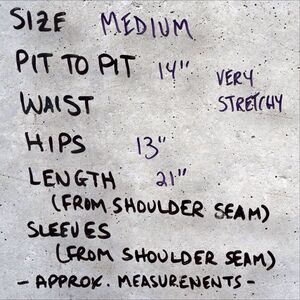 SIZE MEDIUM
PIT TO PIT 14"
VERY
STRETCHY
WAIST
HIPS 13"
LENGTH 21"
(FROM SHOULDER SEAM)
SLEEVES
(FROM SHOULDER SEAM)
- APPROX. MEASURENENTS -